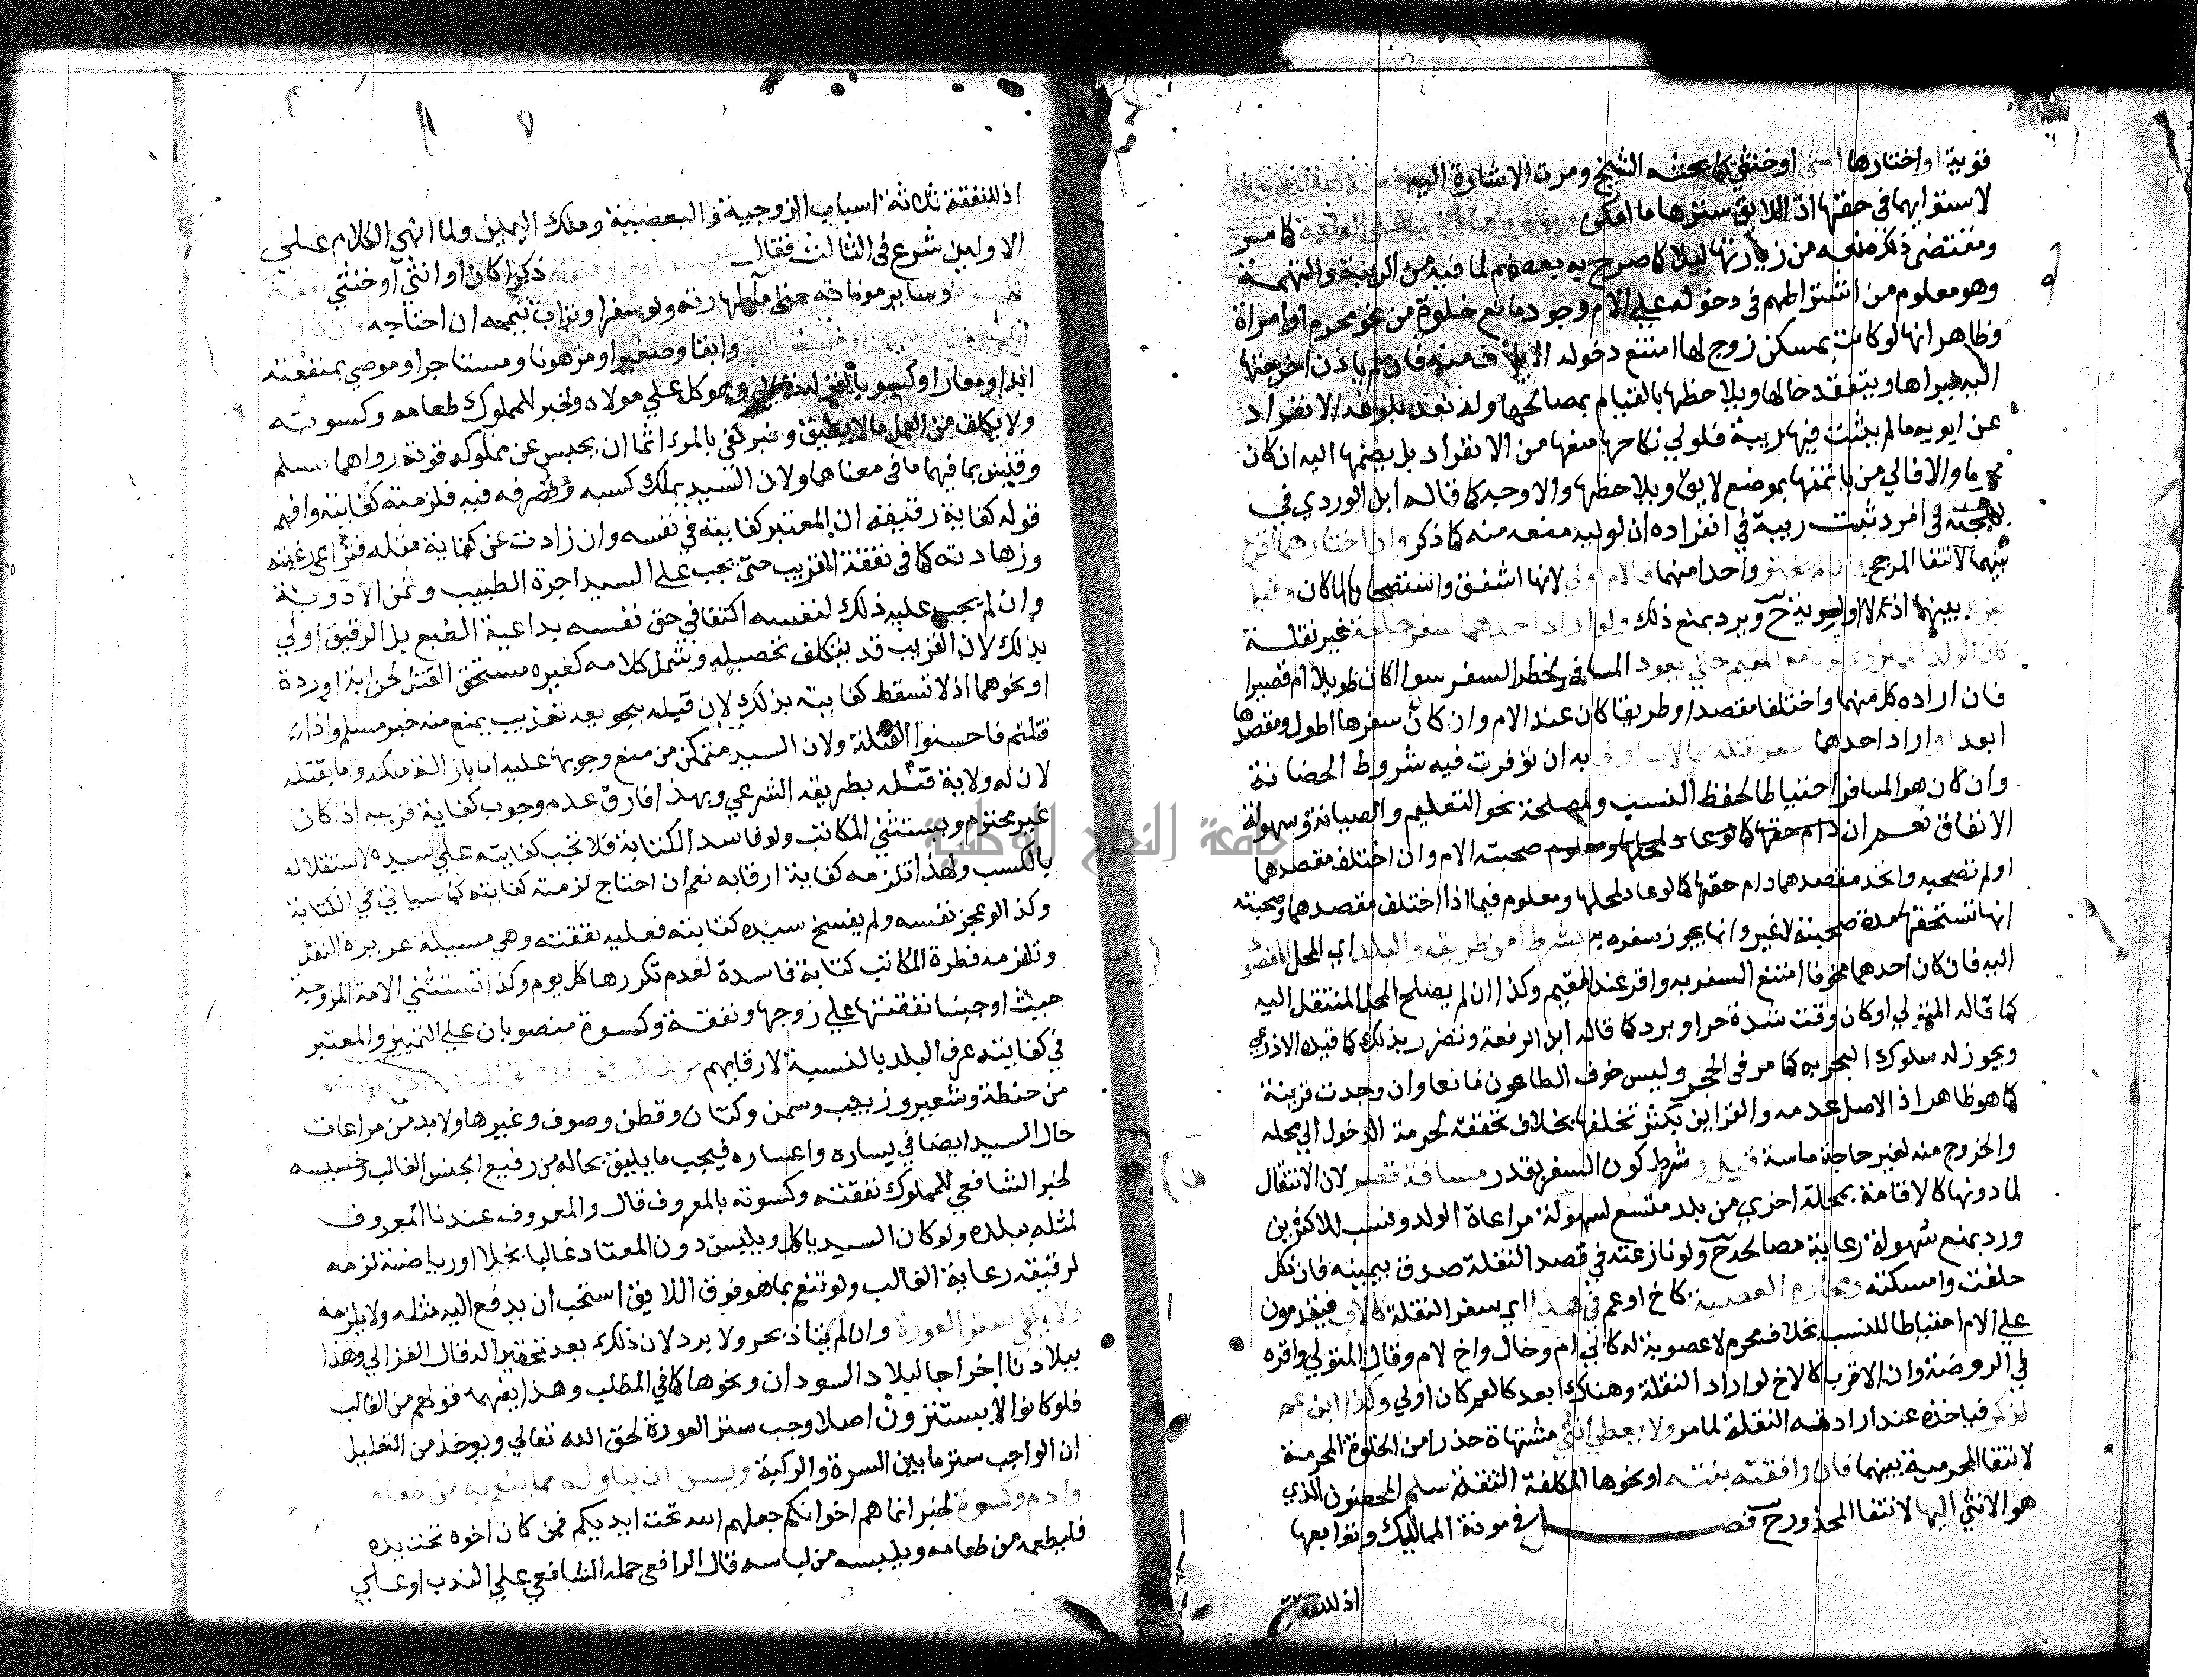 قوية او اختارها انثى او خنثى كما بحثه الشيخ ومرت الاشارة اليه
لاستوايهما في حقها اذ اللايق سترها ما امكن كما مر
ومقتضى ذلك منعه من زيارتها ليلا كما صرح به بعضهم لما فيه من الريبة والتهمة
وهو معلوم من اشتراطهم في دخوله على الام وجود مانع خلوة من نحو محرم او امراة
وظاهر انها لو كانت بمسكن زوج لها امتنع دخوله الا باذن منه فان لم ياذن اخرجتها
اليه ليراها ويتفقد حالها ويلاحظها بالقيام بمصالحها وله بعد بلوغه الانفراد
عن ابويه ما لم يثبت فيها ريبة فلولي نكاحها منعها من الانفراد بل يضمها اليه ان كان
محرما والا فالي من ياتمنها بموضع لايق ويلاحظها والاوجه كما قاله ابن الوردي في
بهجته في امرد ثبت ريبة في انفراده ان لوليه منعه منه كما ذكر وان اختارهما اقرع
بينهما لانتفا المرجح واحدا منهما فالام اولى لانها اشفق واستصحابا لما كان وقيل
يقرع بينهما اذ لا اولوية ح ويرد بمنع ذلك ولو اراد احدهما سفر حاجة غير نقلة
كان الولد المميز وغيره مع المقيم حتى يعود المسافر لخطر السفر سوا اكان طويلا ام قصيرا
فان اراده كل منهما واختلفا مقصدا وطريقا كان عند الام وان كان سفرها اطول ومقصدها
ابعد او اراد احدهما سفر نقلة فالاب اولى به ان توفرت فيه شروط الحضانة
وان كان هو المسافر احتياطا لحفظ النسب ولمصلحة نحو التعليم والصيانة وسهولة
الانفاق نعم ان صحبته الام وان اختلف مقصدهما
او لم تصحبه واتحد مقصدهما دام حقها كما لو عاد لمحلها ومعلوم فيما اذا اختلف مقصدهما وصحبته
انها تستحقها مدة صحبته لا غير وانما يجوز سفره به بشرط امن طريقه والبلد اي المحل المقصود
اليه فان كان احدهما مخوفا امتنع السفر به واقر عند المقيم وكذا ان لم يصلح المحل المنتقل اليه
كما قاله المتولي او كان وقت شدة حر او برد كما قاله ابن الرفعة وتضرر بذلك كما قيده الاذرعي
ويجوز له سلوك البحر به كما مر في الحجر وليس خوف الطاعون مانعا وان وجدت قرينة
كما هو ظاهر اذ الاصل عدمه والقراين يكثر تخلفها بخلاف تحققه لحرمة الدخول الى محله
والخروج منه لغير حاجة ماسة قيل وشرط كون السفر بقدر مسافة قصر لان الانتقال
لما دونها كالاقامة بمحلة اخرى من بلد متسع لسهولة مراعاة الولد ونسب للاكثرين
ورد بمنع سهولة رعاية مصالحه ح ولو نازعته في قصد النقلة صدق بيمينه فان نكل
حلفت وامسكته ومحارم العصبة كاخ او عم في هذا اي سفر النقلة كالاب فيقدمون
على الام احتياطا للنسب بخلاف محرم لا عصوبة له كابي ام وخال واخ لام وقال المتولي واقره
في الروضة وان الاقرب كالاخ لو اراد النقلة وهناك ابعد كالعم كان اولى وكذا ابن عم
لذكر فياخذه عند ارادته النقلة لما مر ولا يعطى انثى مشتهاة حذرا من الخلوة المحرمة
لانتفا المحرمية بينهما فان رافقته بنته او نحوها المكلفة الثقة سلم المحضون الذي
هو الانثى اليها لانتفا المحذور ح فصل في مونة المماليك وتوابعها
اذ للنفقة
اذ للنفقة ثلاثة اسباب الزوجية والبعضية وملك اليمين ولما انهى الكلام على
الاولين شرع في الثالث فقال ذكرا كان او انثى او خنثى
وساير موناته حتى ما طهارته ولو سفرا وتراب تيممه ان احتاجه
وابقا وصغيرا ومرهونا ومستاجرا وموصى بمنفعته
ابدا ومعارا وكسوبا وهو كل على مولاه ولخبر للمملوك طعامه وكسوته
ولا يكلف من العمل ما لا يطيق وخبر كفى بالمرء اثما ان يحبس عن مملوكه قوته رواهما مسلم
وقيس بما فيهما ما في معناهما ولان السيد يملك كسبه وتصرفه فيه فلزمته كفايته وافهم
قوله كفاية رقيقه ان المعتبر كفايته في نفسه وان زادت عن كفاية مثله فتراعى رغبته
وزهادته كما في نفقة القريب حتى يجب على السيد اجرة الطبيب وثمن الادوية
وان لم يجب عليه ذلك لنفسه اكتفا في حق نفسه بداعية الطبع بل الرقيق اولى
بذلك لان القريب قد يتكلف تحصيله وشمل كلامه كغيره مستحق القتل لحرابة او ردة
او نحوهما اذ لا تسقط كفايته بذلك لان قتله بتجويعه تعذيب يمنع منه خبر مسلم واذا
قتلتم فاحسنوا القتلة ولان السيد متمكن من منع وجوبها عليه اما بازالة ملكه واما بقتله
لان له ولاية قتله بطريقه الشرعي وبهذا فارق عدم وجوب كفاية قريبه اذا كان
غير محترم ويستثنى المكاتب ولو فاسد الكتابة فلا تجب كفايته على سيده لاستقلاله
بالكسب ولهذا تلزمه كفاية ارقايه نعم ان احتاج لزمته كفايته كما سياتي في الكتابة
وكذا لو عجز نفسه ولم يفسخ سيده كتابته فعليه نفقته وهي مسيلة عزيزة النقل
وتلزمه فطرة المكاتب كتابة فاسدة لعدم تكررها كل يوم وكذا تستثنى الامة المزوجة
حيث اوجبنا نفقتها على زوجها ونفقة وكسوة منصوبان على التمييز والمعتبر
في كفايته عرف البلد بالنسبة لارقايهم
من حنطة وشعير وزبيب وسمن وكتان وقطن وصوف وغيرها ولا بد من مراعات
حال السيد ايضا في يساره واعساره فيجب ما يليق بحاله من رفيع الجنس الغالب وخسيسه
لخبر الشافعي للمملوك نفقته وكسوته بالمعروف قال والمعروف عندنا المعروف
لمثله ببلده ولو كان السيد ياكل ويلبس دون المعتاد غالبا بخلا او رياضة لزمه
لرقيقه رعاية الغالب ولو تنعم بما هو فوق اللايق استحب ان يدفع اليه مثله ولا يلزمه
ولا يكفي ستر العورة وان لم يتاذ بحر ولا برد لان ذلك يعد تحقيرا له قال الغزالي وهذا
ببلادنا اخراجا لبلاد السودان ونحوها كما في المطلب وهذا يفهمه قولهم من الغالب
فلو كانوا لا يستترون اصلا وجب ستر العورة لحق الله تعالى ويوخذ من التعليل
ان الواجب ستر ما بين السرة والركبة ويسن ان يناوله مما يتنعم به من طعام
وادم وكسوة لخبر انما هم اخوانكم جعلهم الله تحت ايديكم فمن كان اخوه تحت يده
فليطعمه من طعامه ويلبسه من لباسه قال الرافعي حمله الشافعي على الندب او على
جامعة النجاح الوطنية